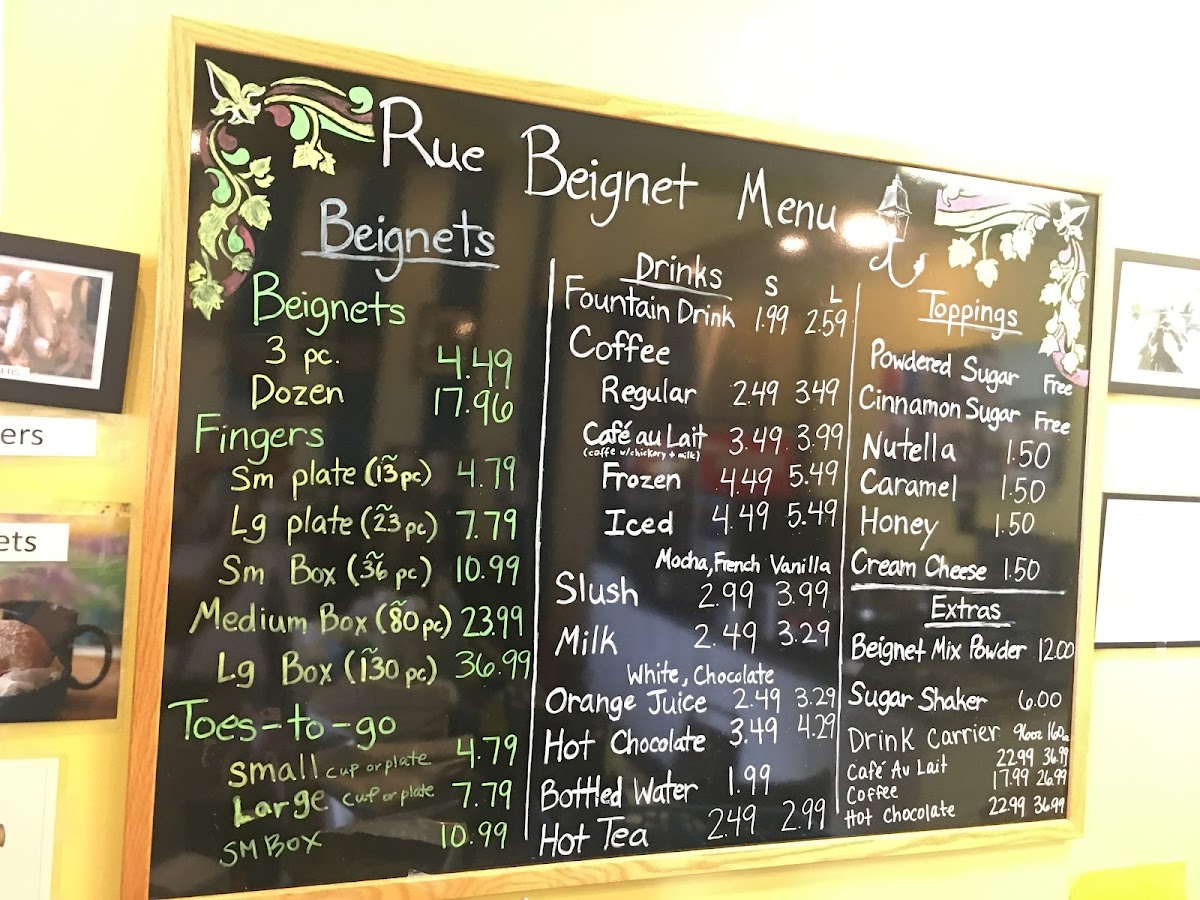 Rue Beignet Menu
Beignets
Beignets
3 pc. 4.49
Dozen 17.96
Fingers
Sm plate (~13 pc) 4.79
Lg plate (~23 pc) 7.79
Sm Box (~36 pc) 10.99
Medium Box (~80 pc) 23.99
Lg Box (~130 pc) 36.99
Toes-to-go
small cup or plate 4.79
Large cup or plate 7.79
SM Box 10.99
Drinks S L
Fountain Drink 1.99 2.59
Coffee
Regular 2.49 3.49
Café au Lait 3.49 3.99
(coffe w/chickory + milk)
Frozen 4.49 5.49
Iced 4.49 5.49
Mocha, French Vanilla
Slush 2.99 3.99
Milk 2.49 3.29
White, Chocolate
Orange Juice 2.49 3.29
Hot Chocolate 3.49 4.29
Bottled Water 1.99
Hot Tea 2.49 2.99
Toppings
Powdered Sugar Free
Cinnamon Sugar Free
Nutella 1.50
Caramel 1.50
Honey 1.50
Cream Cheese 1.50
Extras
Beignet Mix Powder 12.00
Sugar Shaker 6.00
Drink Carrier 96oz 160oz
Café Au Lait 22.99 36.99
Coffee 17.99 26.99
Hot Chocolate 22.99 36.99
ers
ets